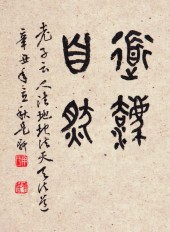 道法
自然
老子云人法地地法天天法道
辛丑年立秋